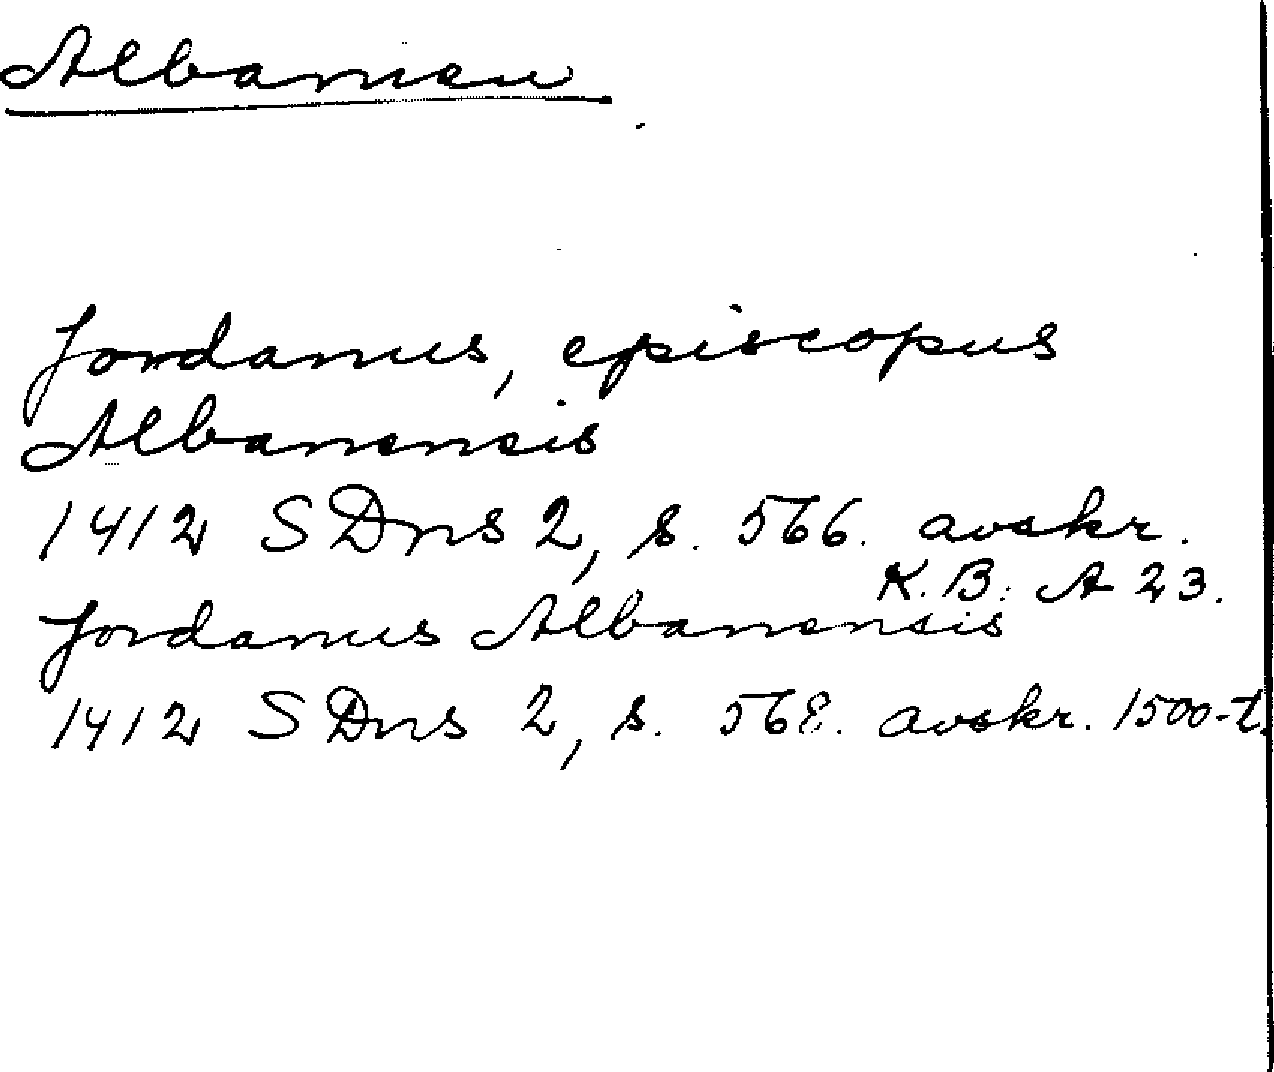 Albanien
Jordanus, episcopus
Albanensis
1412 SDns 2, s. 566. avskr.
K.B. A 23.
Jordanus Albanensis
1412 SDns 2, s. 568. avskr. 1500-t.